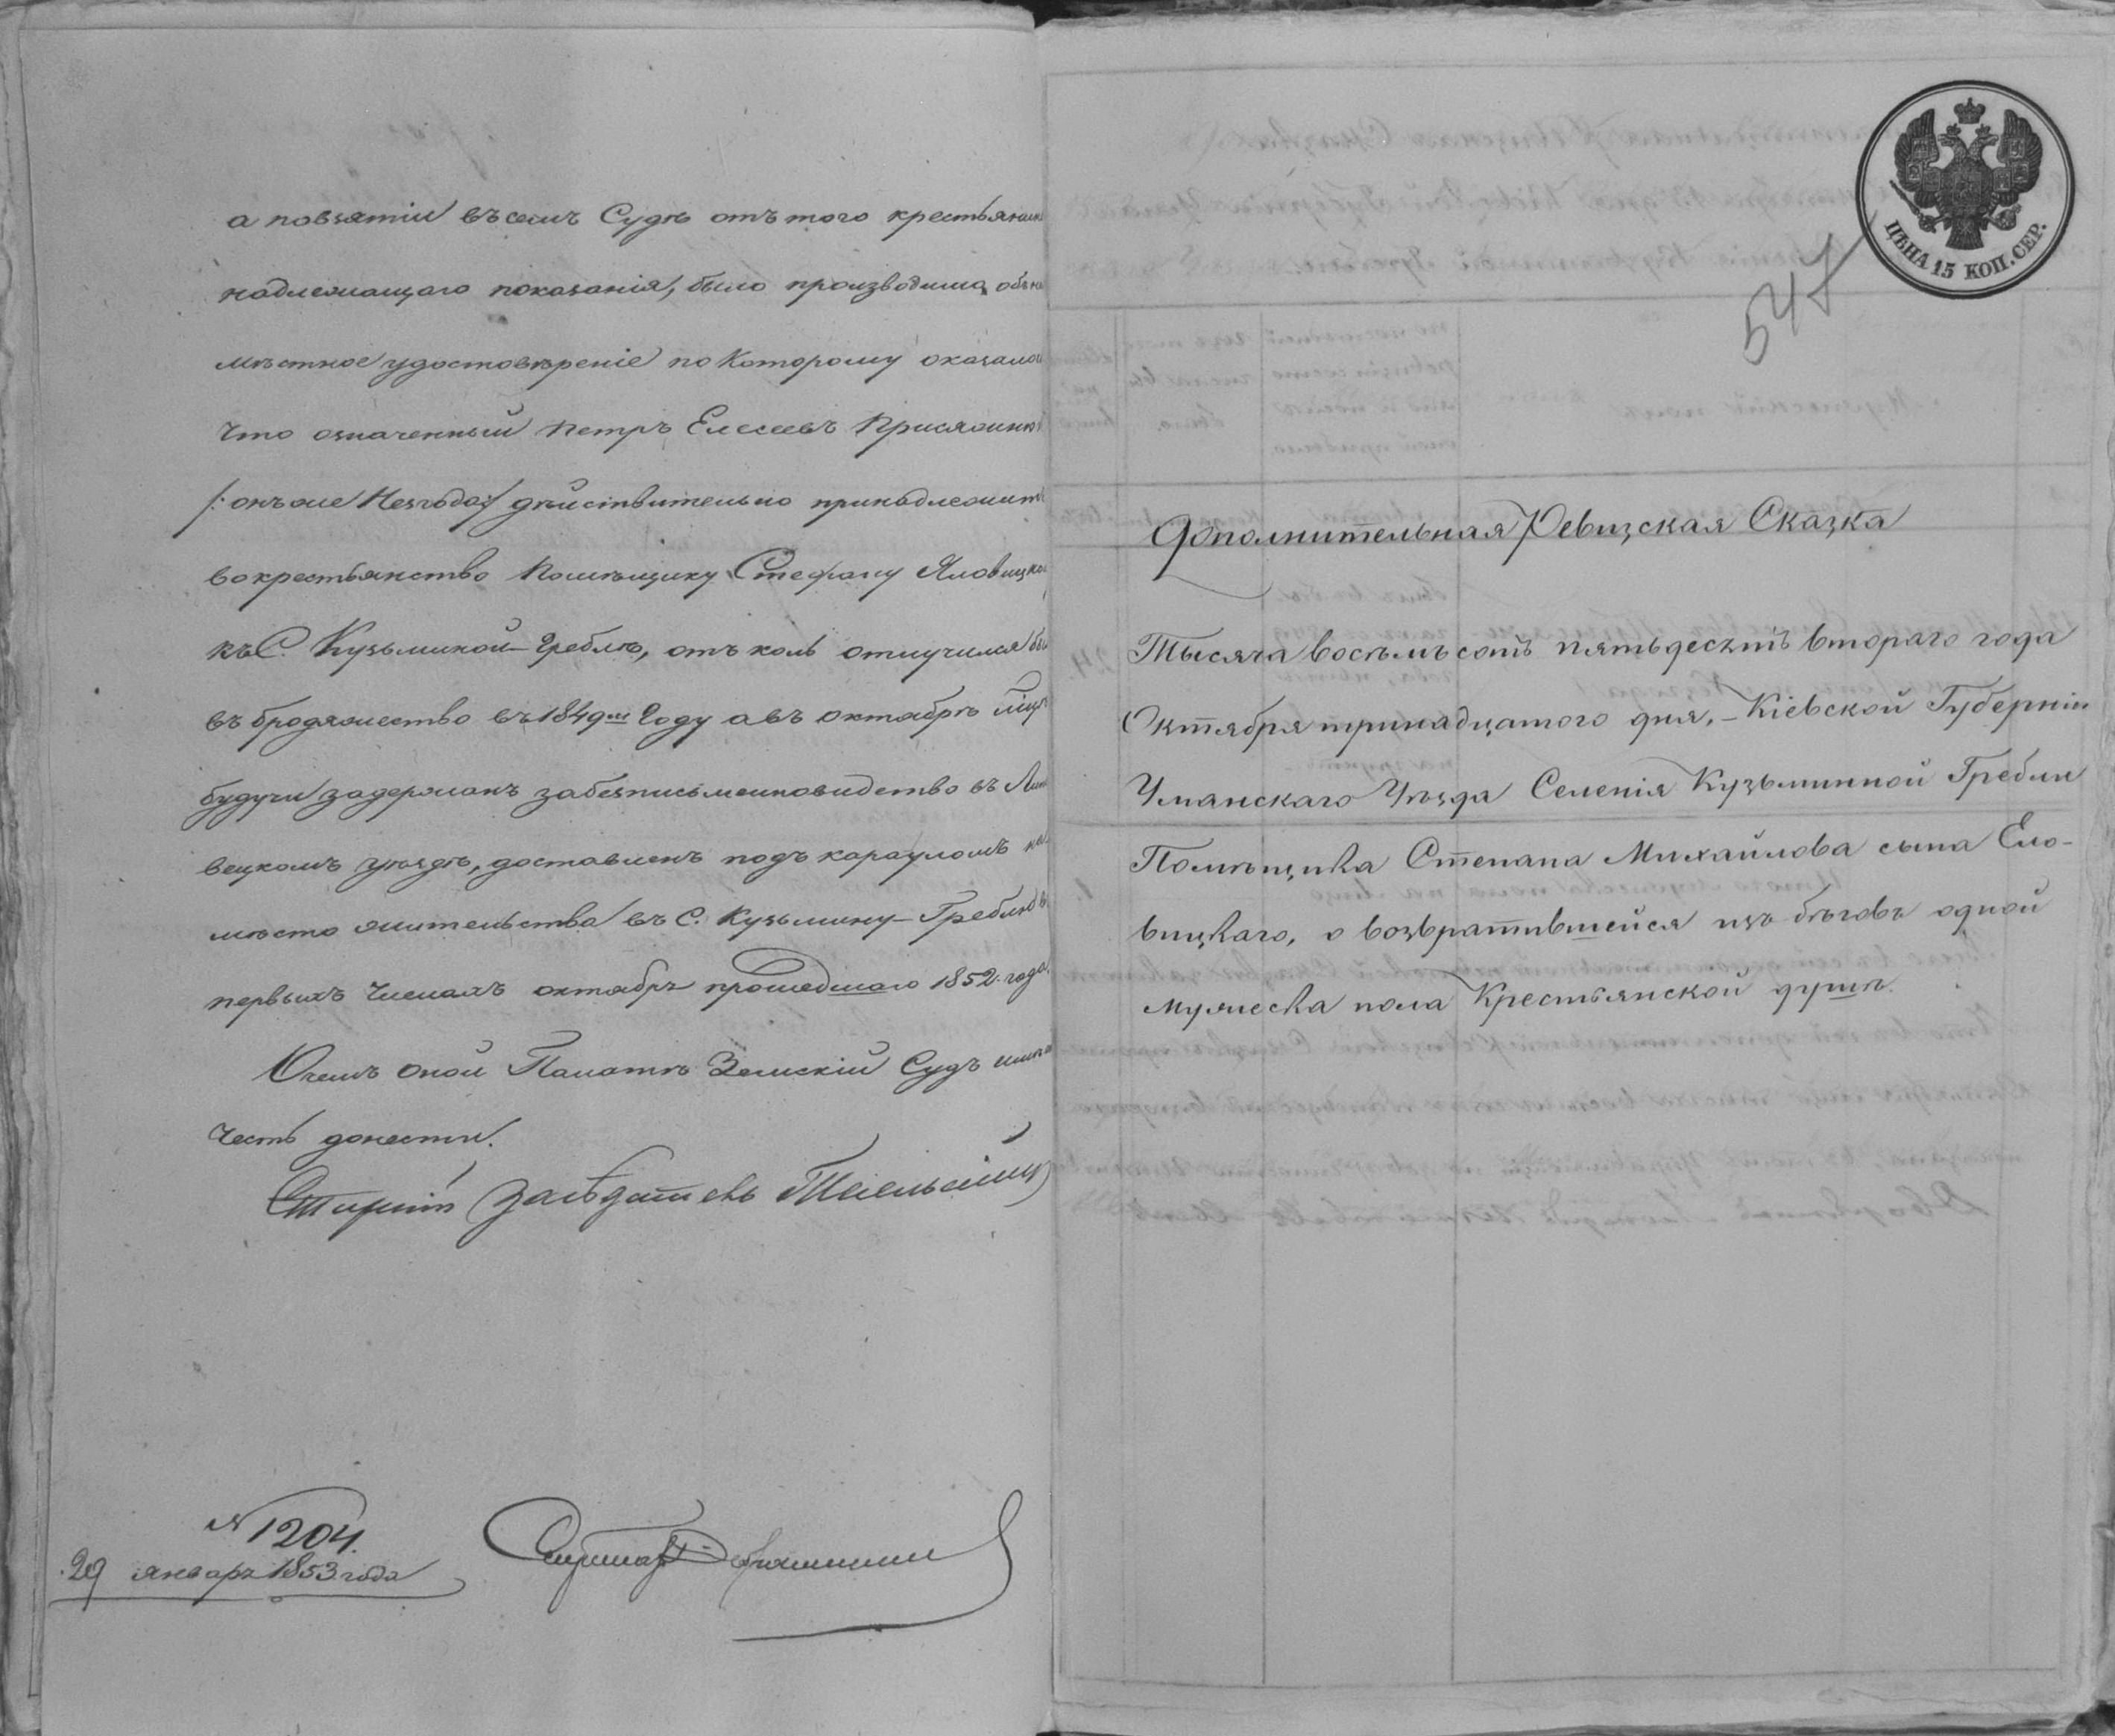 а повзятіи въ семъ Судѣ отъ того крестьянина
надлежащаго показанія, было производимо
мѣстное удостовѣреніе по которому оказалось
что означенный Петръ Елесеевъ Присяжнюк
/: онъ же Незгода :/ дѣйствительно принадлежитъ
во крестьянство Помѣщику Стефану Яловицко
къ С. Кузьминой-Греблѣ, отъ коль отлучился
въ бродяжество въ 1849м Году а въ октябрѣ мѣц
будучи задержанъ за безписьменновидство въ Лип
вецкомъ уѣздѣ, доставленъ подъ карауломъ на
мѣсто жительства въ С. Кузьмину-Греблю въ
первыхъ числахъ октября прошедшаго 1852 года.
О чемъ оной Палатѣ Земскій Судъ имѣет
честь донести.
Старшій Засѣдатель
№ 1204.
29 января 1853 года
ЦѢНА 15 КОП. СЕР.
547
Дополнительная Ревизская Сказка
Тысяча восемь сотъ пятьдесятъ втораго года
Октября тринадцатого дня, – Кіевской Губерніи
Уманскаго Уѣзда Селенія Кузьминной Гребли
Помѣщика Степана Михайлова сына Ело-
вицкаго, о возвратившейся изъ бѣговъ одной
мужеска пола Крестьянской душѣ.